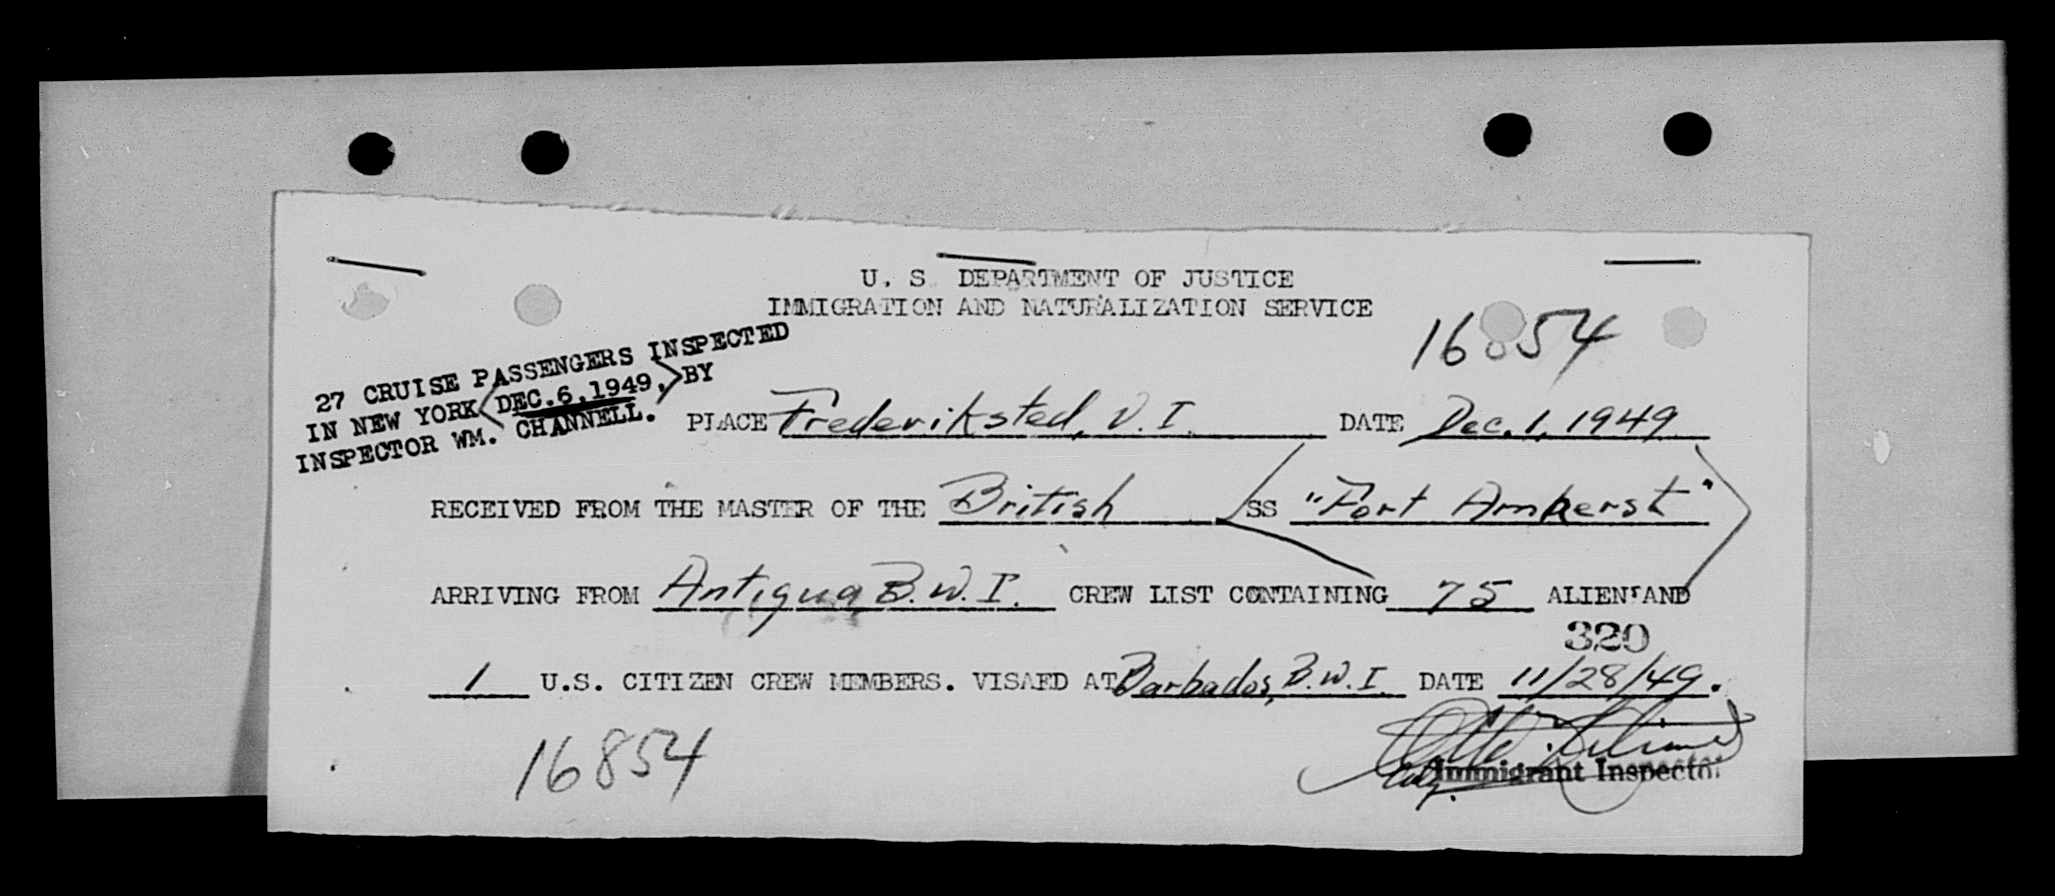 U. S. DEPARTMENT OF JUSTICE
IMMIGRATION AND NATURALIZATION SERVICE
16854
27 CRUISE PASSENGERS INSPECTED
IN NEW YORK DEC.6,1949, BY
INSPECTOR WM. CHANNELL.
PLACE Frederiksted, V.I. DATE Dec. 1, 1949
RECEIVED FROM THE MASTER OF THE British SS "Fort Amherst"
ARRIVING FROM Antigua, B.W.I. CREW LIST CONTAINING 75 ALIEN AND
320
1 U.S. CITIZEN CREW MEMBERS. VISAED AT Barbados, B.W.I. DATE 11/28/49.
16854
Immigrant Inspector